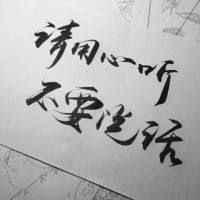 请用心听
不要说话